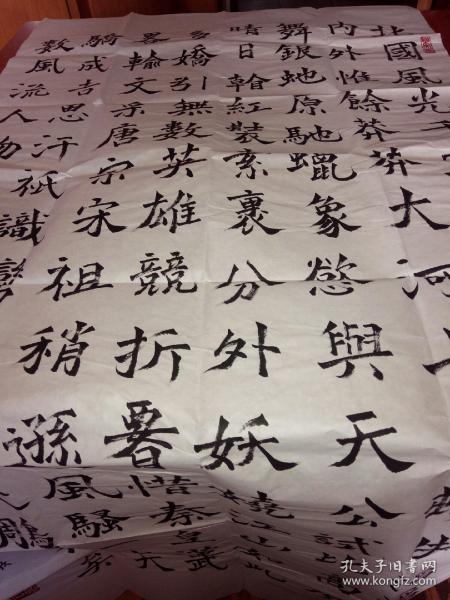 北國風光千
內外惟餘莽莽大河上
舞銀蛇原馳蠟象慾與天公試比
晴日看紅裝素裹分外妖嬈江山如此
多嬌引無數英雄競折惜秦皇武
畧輸文采唐宗宋祖稍遜風騷天
驕成吉思汗祇識彎鵰
數風流人物
孔夫子旧书网
www.kongfz.com